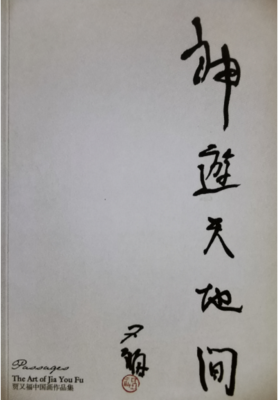 神遊天地間
又福
Passages
The Art of Jia You Fu
賈又福中国画作品集